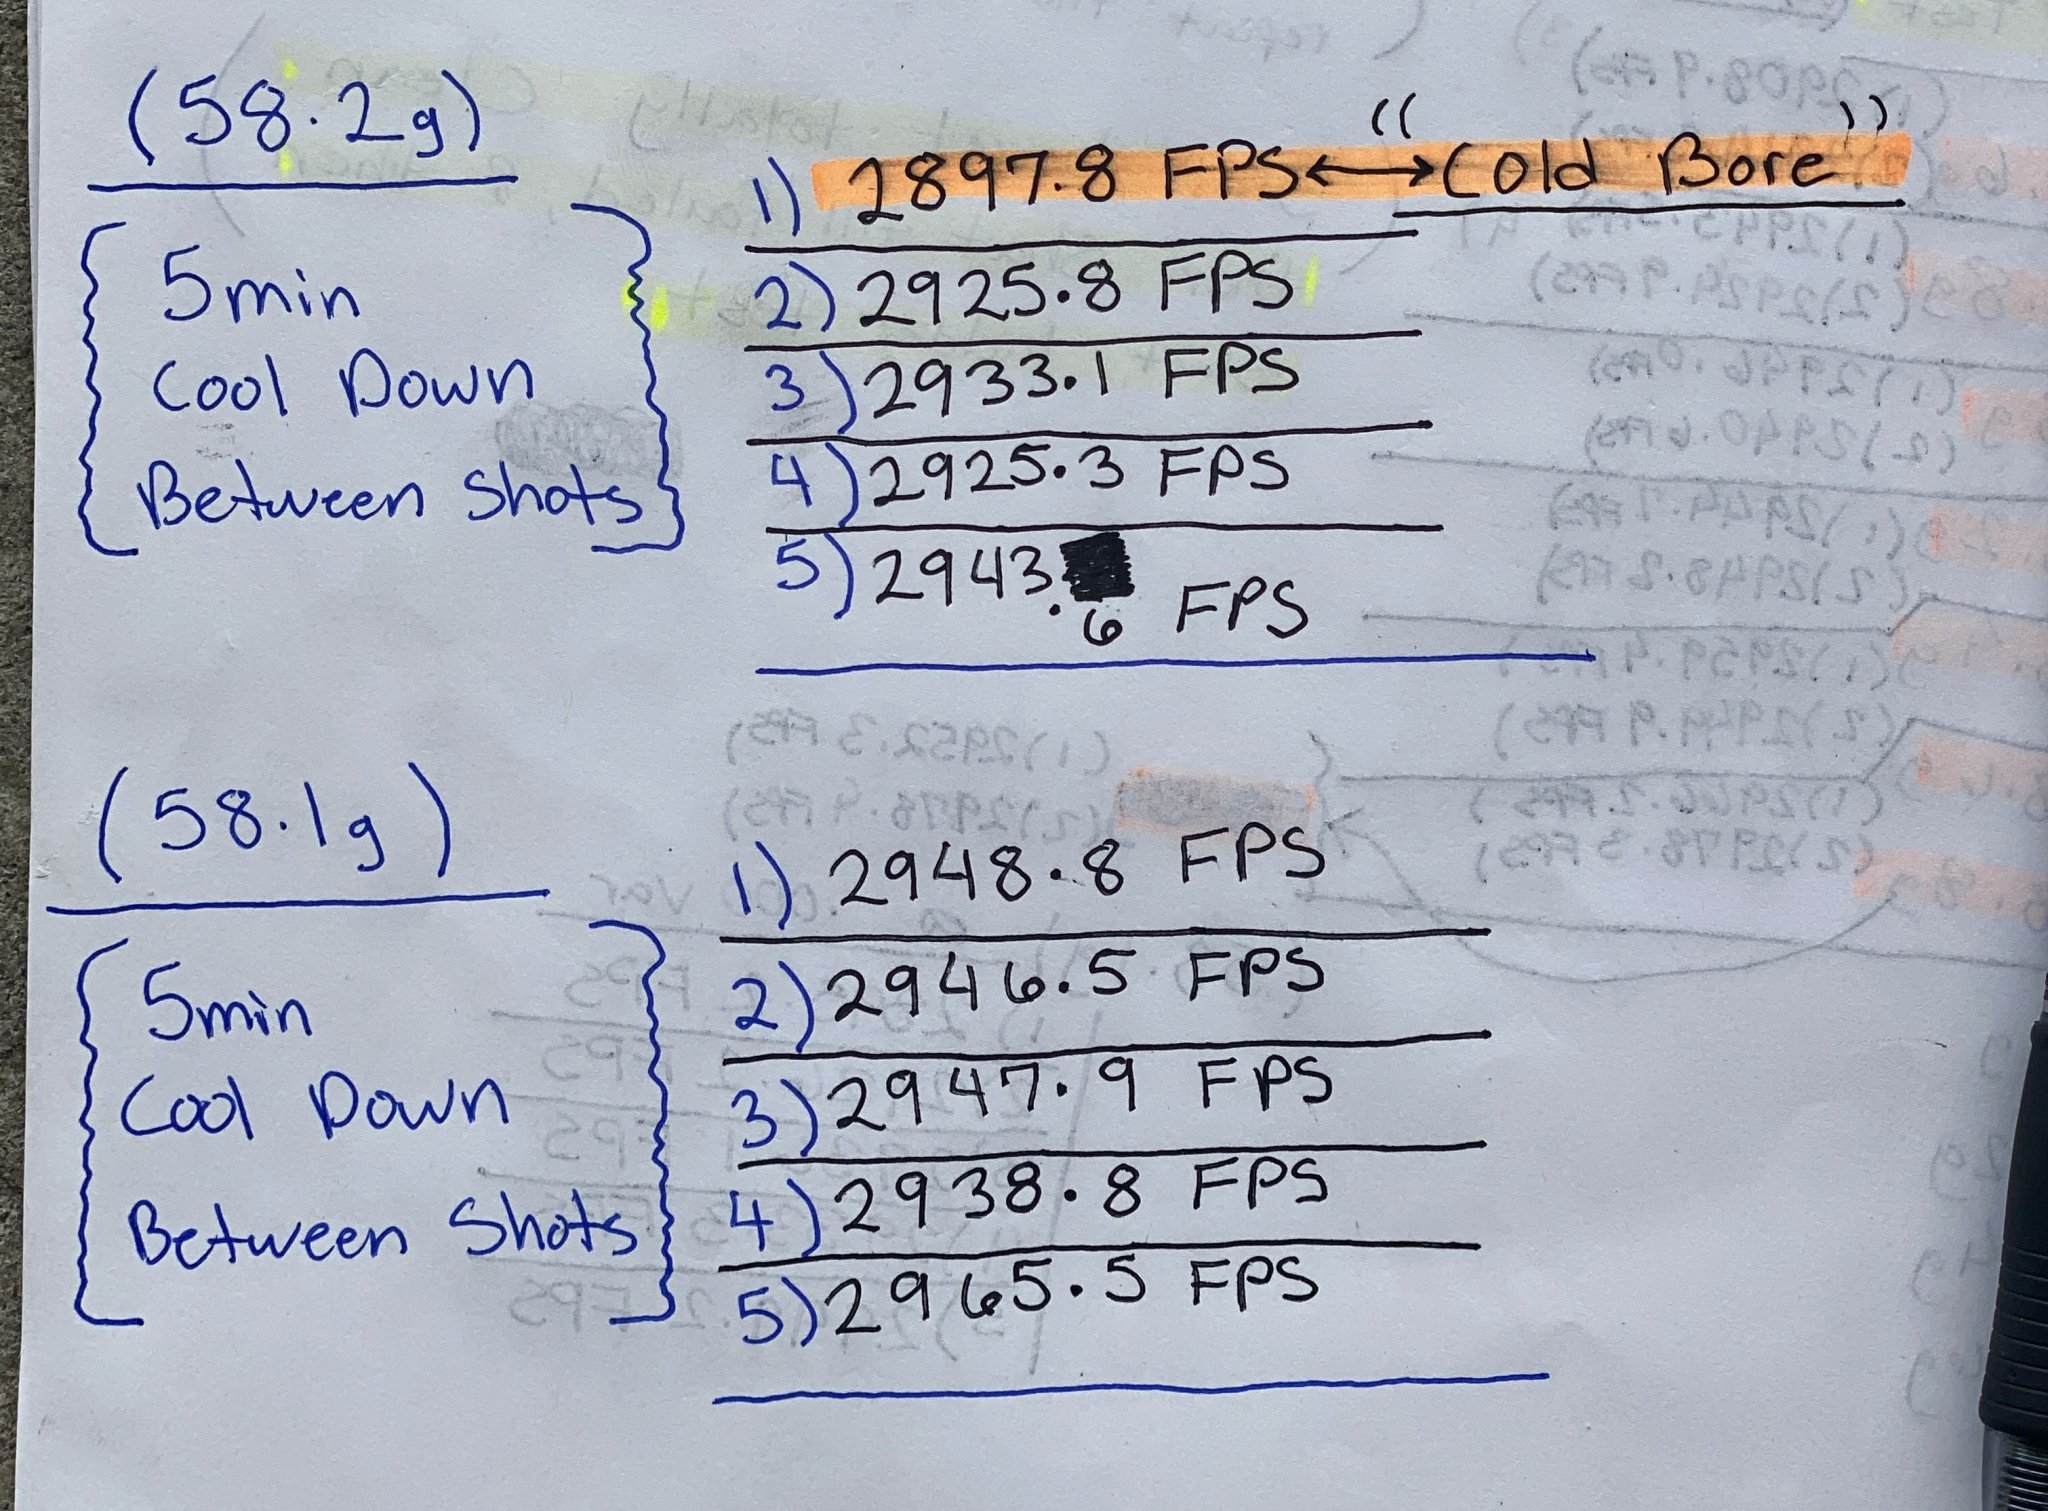 (58.2g)
5min
Cool Down
Between Shots
1) 2897.8 FPS ↔ "Cold Bore"
2) 2925.8 FPS
3) 2933.1 FPS
4) 2925.3 FPS
5) 2943.6 FPS
(58.1g)
5min
Cool Down
Between Shots
1) 2948.8 FPS
2) 2946.5 FPS
3) 2947.9 FPS
4) 2938.8 FPS
5) 2965.5 FPS